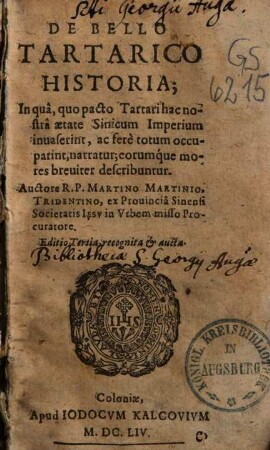 Sčti Georgii Augæ.
DE BELLO
TARTARICO
HISTORIA;
In quâ, quo pacto Tartari hac no-
strâ ætate Sinicum Imperium
inuaserint, ac ferè totum occu-
parint, narratur; eorumque mo-
res breuiter describuntur.
Auctore R. P. MARTINO MARTINIO,
TRIDENTINO, ex Prouinciâ Sinensi
Societatis IESV in Vrbem misso Pro-
curatore.
Editio Tertia, recognita & aucta.
Bibliothecæ S. Georgij Augæ
IHS
Coloniæ,
Apud IODOCVM KALCOVIVM
M. DC. LIV.
GS
6215
KÖNIGL KREISBIBLIOTHEK
IN
AUGSBURG